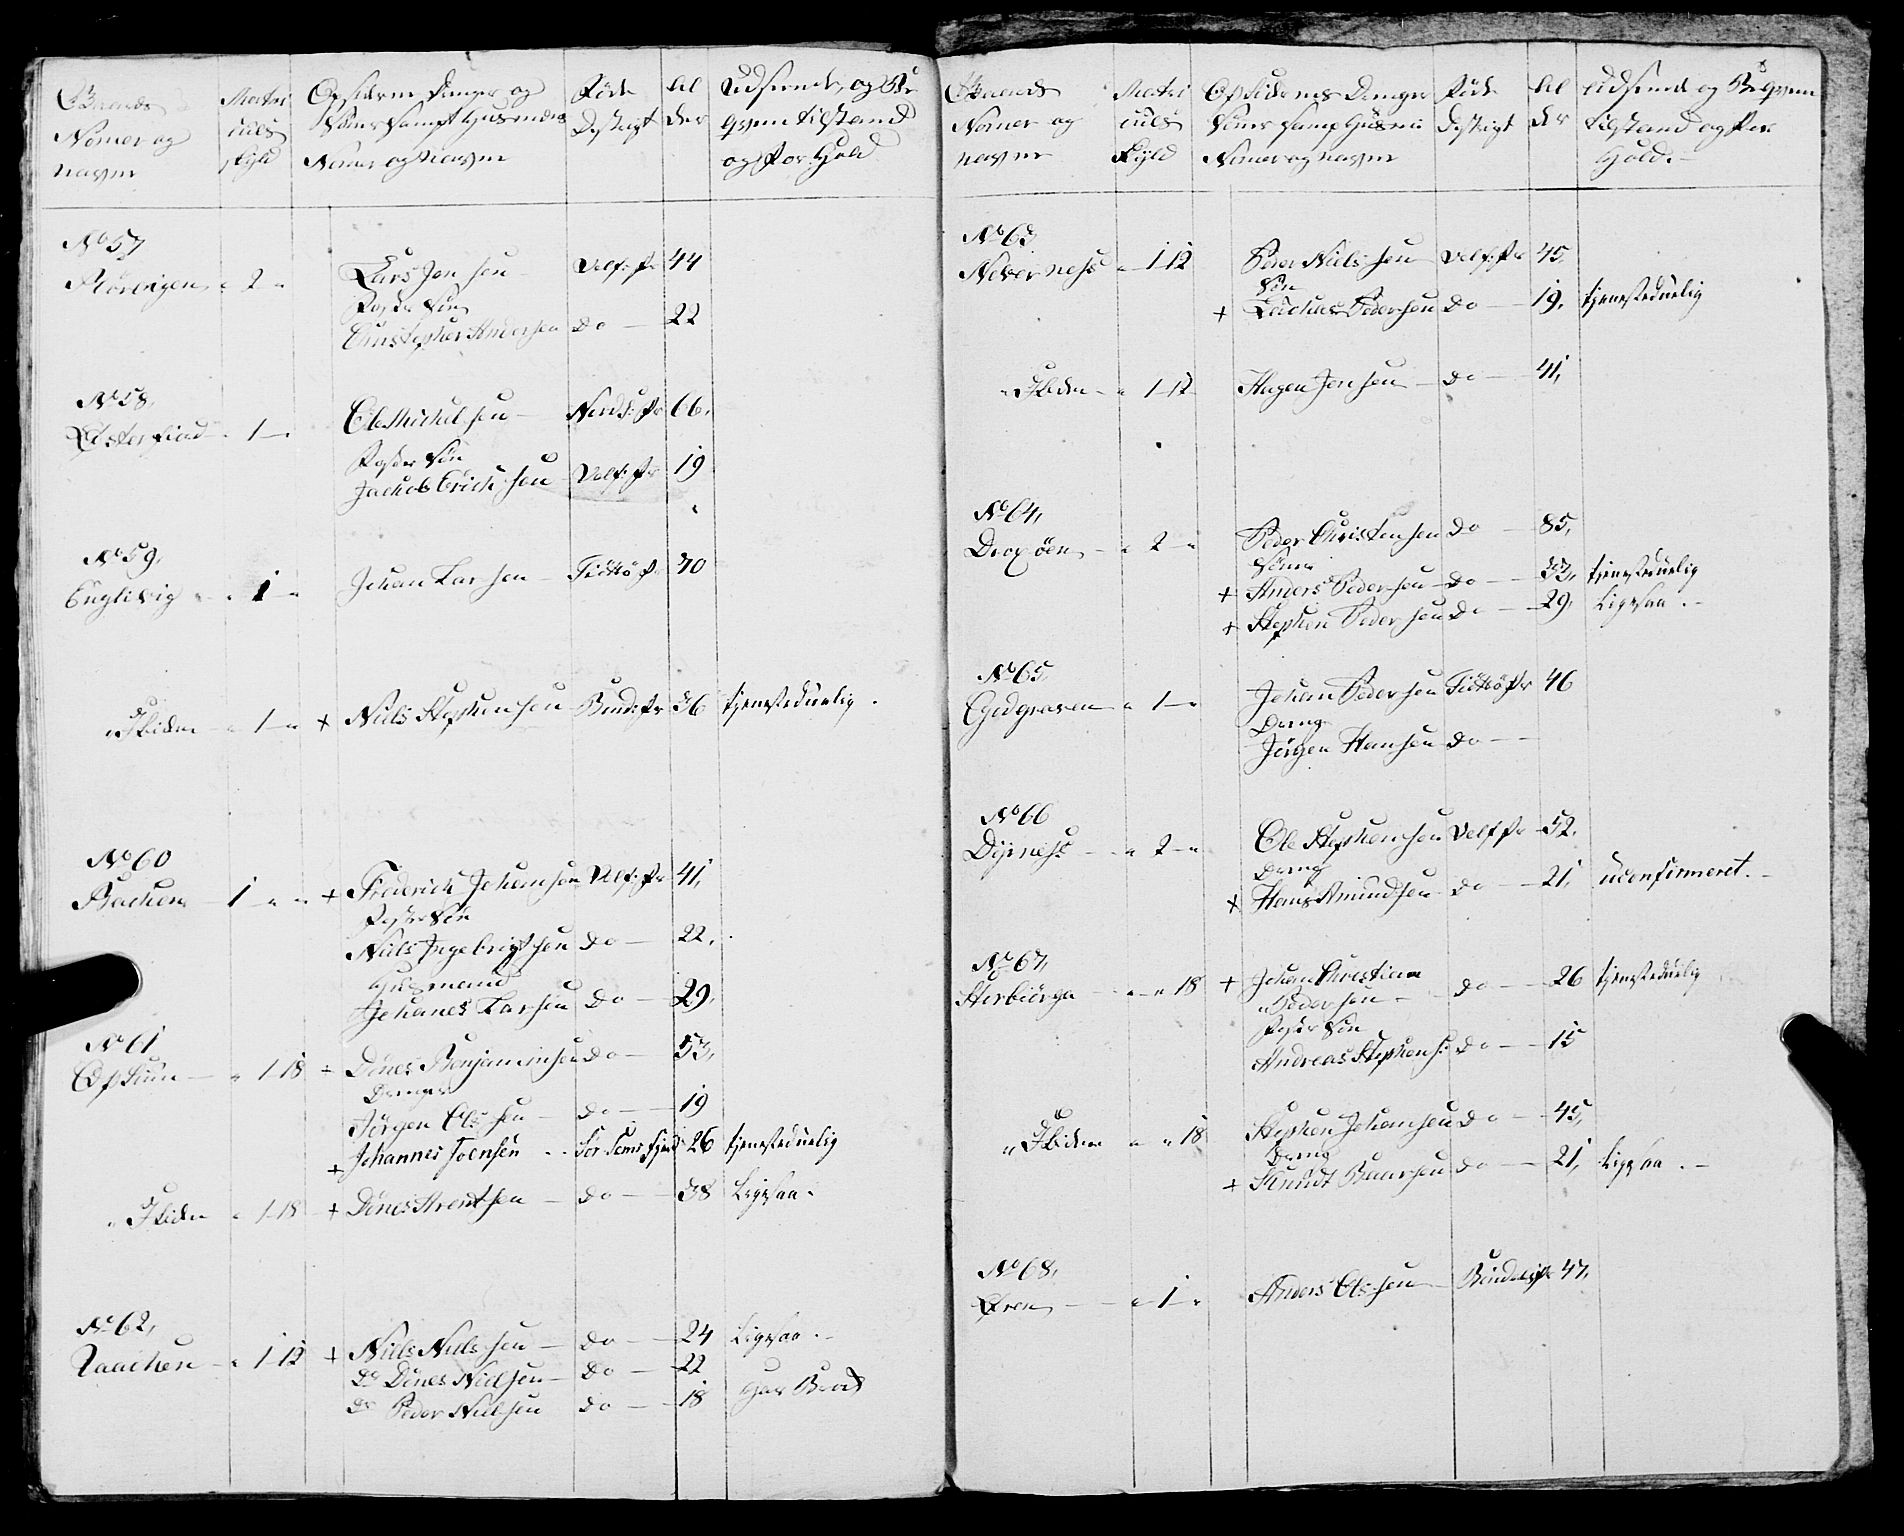 Gaards
Nomer og
navne
Matri
culs
skyld
Opsidderne Drenger og
Sønner samt Husmænds
Nomer og Navne
Føde
Distrigt
Al
der
Udseende, og Be
qvem tilstand
og For Hold
No 57
Rørvigen " 2 "
Lars Jensen Velf: Pr 44
Foster Søn
Christopher Andersen do 22
No 58,
Østerfiord " 1 "
Ole Michelsen Nerds: Pr 66,
Foster Søn
Jachob Erichsen Velf: Pr 19
No 59,
Englivig " 1 "
Johan Larsen Fiettø Pr 70
" Ibidem " 1 " + Niels Stephensen Bind: Pr 36 tjenestduelig.
No 60
Bachen 1 " " + Frederich Johansen Velf: Pr 41,
Foster Søn
Niels Ingebrigtsen do 22,
Husmand
Johanes Larsen do 29,
No 61
Opsiun " 1 18 + Dønes Benjaminsen do 53,
Drenge
Jørgen Olsen do 19
+ Johannes Joensen Sør Somsfjord 26 tjenestduelig
" Ibidem " 1 18 + Dønes Arentsen do 38 Ligesaa.
No 62,
Raachen " 1 12 + Niels Nielsen do 24 Ligesaa.
do Dønes Nielsen do 22
do Peder Nielsen do 18 Har Brok
Gaards
Nomer og
navne
Matri
culs
Skyld
Opsidernes Drenger
Sønner samt Husmæ
Nomer og navne
Føde
Distrigt
Al
der
Udseende og Beqvem
tilstand og For
Hold.
No 63
Neverness " 1 12
Peder Nielsen Velf: Pr 45,
Søn
+ Zachias Pedersen do 19, tjenestduelig
" Ibidem " 1 12 Hagen Jensen do 41,
No 64,
Draxøen " 2 "
Peder Christensen do 85,
Sønner
+ Anders Pedersen do 33, tjenestduelig
+ Stephen Pedersen do 29, Ligesaa.
No 65,
Gjedgraven " 1 "
Johan Pedersen Fiettø Pr 46
Dreng
Jørgen Hansen do
No 66
Dyrness " 2 "
Ole Stephensen Velf Pr 52,
Dreng
+ Hans Amundsen do 21, uconfirmeret.
No 67,
Storbiørga " " 18 + Johan Christian
Pedersen do 26 tjenestduelig
Foster Søn
Andreas Stephens: do 15
" Ibidem " " 18 Stephen Johansen do 45,
Dreng
+ Knudt Baarsen do 21, Ligesaa.
No 68,
Øren " 1 "
Anders Olsen Bindals Pr 47,